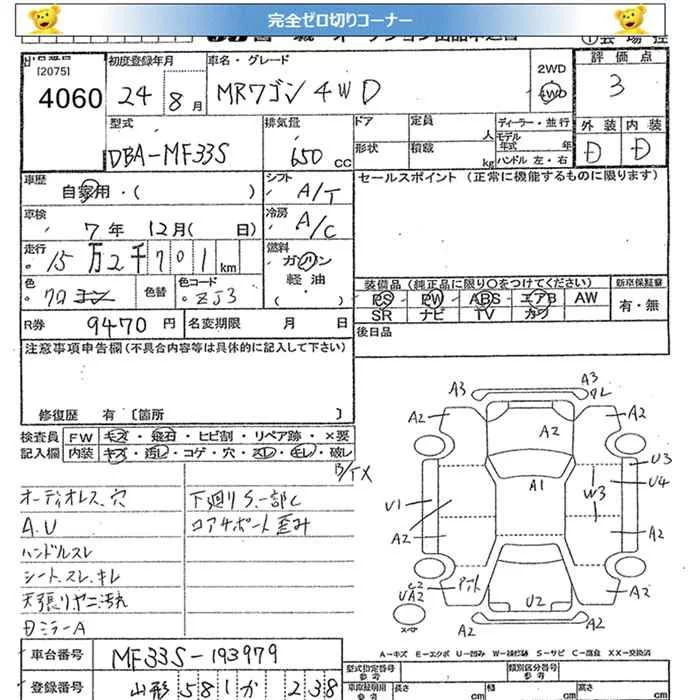 完全ゼロ切りコーナー
[2075]
4060
初度登録年月
24年 8月
車名・グレード
MRワゴン 4WD
2WD
4WD
評価点
3
外装 内装
D D
型式
DBA-MF33S
排気量
650 CC
ドア
定員 人
形状
積載 kg
ディーラー・並行
モデル年式 年
ハンドル 左・右
車歴
自家用・( )
シフト
A/T
セールスポイント (正常に機能するものに限ります)
車検
7年 12月( 日)
冷房
A/C
走行
15万2千701km
燃料
ガソリン
軽油
( )
色
クロ
色替
色コード
ZJ3
装備品 (純正品に限り○をつけてください)
新車保証書
PS PW ABS エアB AW
SR ナビ TV カワ
有・無
R券 9470円
名変期限 月 日
後日品
注意事項申告欄(不具合内容等は具体的に記入して下さい)
修復歴 有 〔箇所 〕
検査員記入欄
FW キズ・飛石・ヒビ割・リペア跡・×要
内装 キズ・汚レ・コゲ・穴・スレ・キレ・破レ
オーディオレス、穴
A.U
ハンドルスレ
シート、スレ、キレ
天張リヤニ汚れ
Dミラー A
下廻りS、一部C
コアサポート歪み
A3 A3
A2 A2 A2
A1
U1 W3 U3
U4
A2 A2
A2
C2
U2
A2 A2
A-キズ E-エクボ U-凹み W-補修跡 S-サビ C-腐食 XX-交換済
車台番号 MF33S-193979
登録番号 山形 581 か 238
型式指定番号 参考
類別区分番号 参考
長さ cm 幅 cm 高さ cm